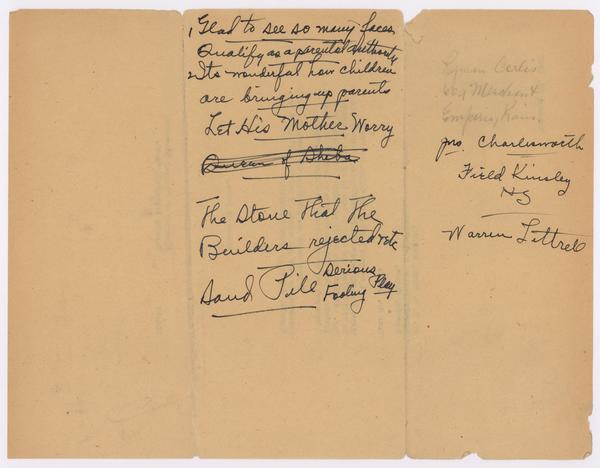 1, Glad to see so many faces
Qualify as a parental authority
2 Its wonderful how children
are bringing up parents
Let His Mother Worry
Queen of Sheba
The Stone That The
Builders rejected etc
Sand Pile Serious Play
Fooling
Lyman Corlis
603 Merchant
Emporia, Kans
Mrs. Charlesworth
Field Kinsley
HS
Warren Littrel